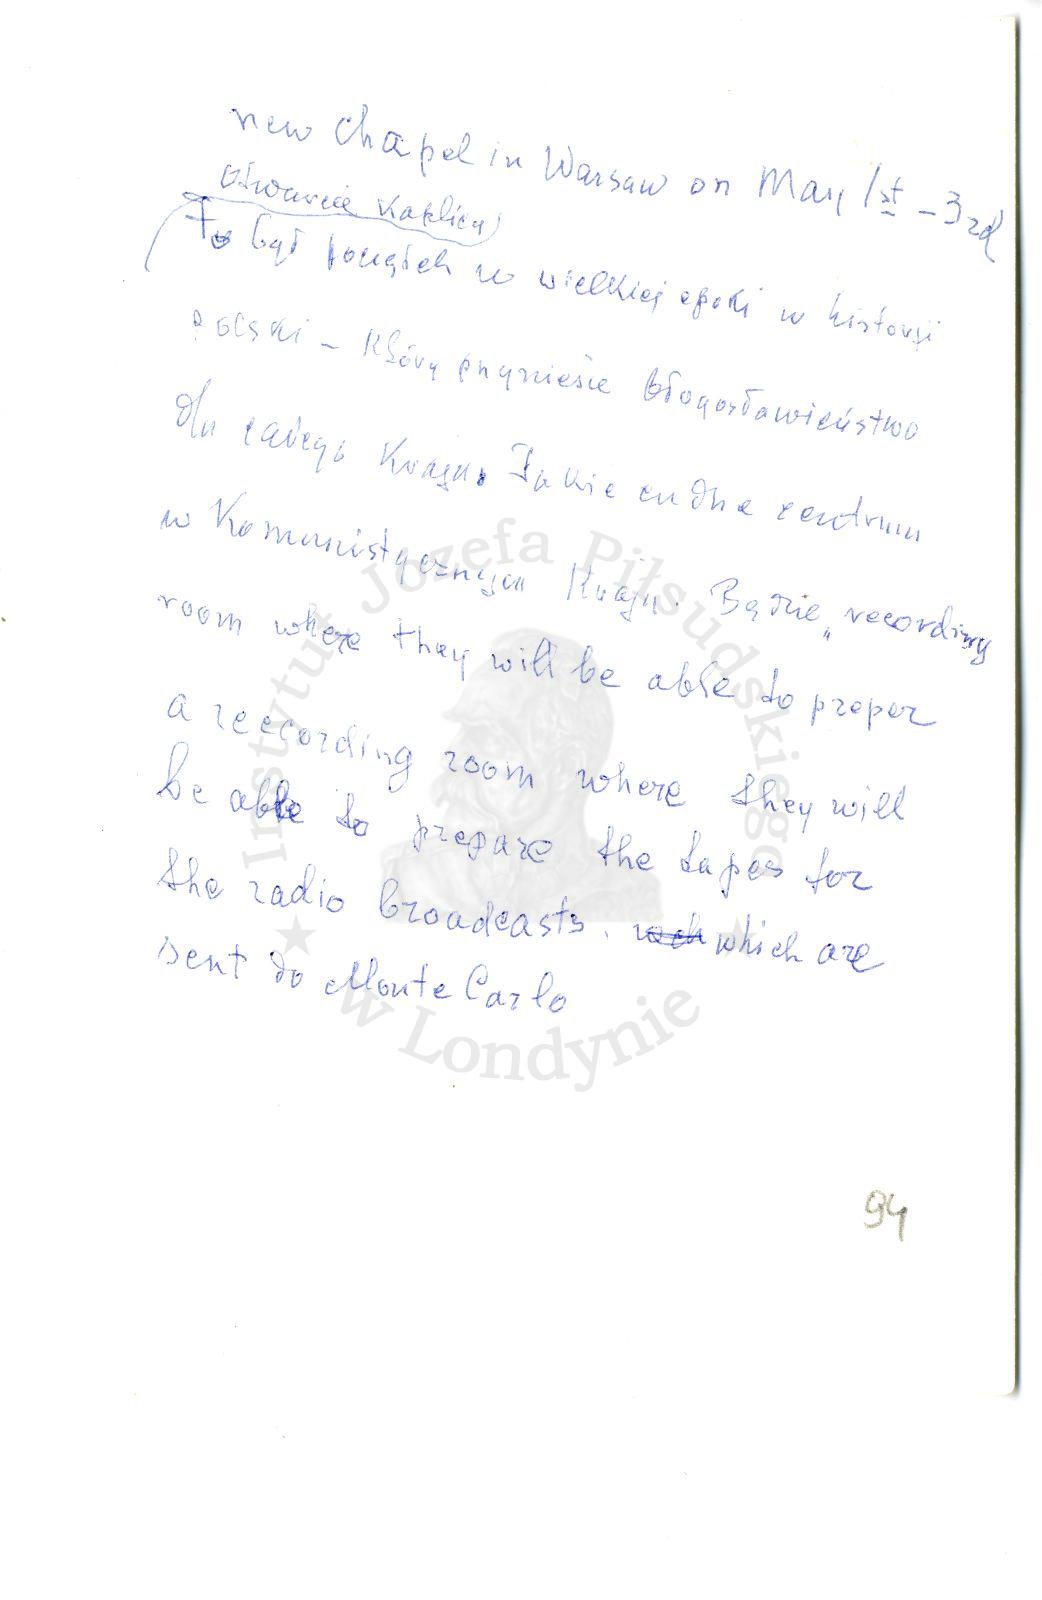 new Chapel in Warsaw on May 1st – 3rd
otwarcie Kaplicy
To był początek w wielkiej epoki w historji
Polski – którą przyniesie błogosławieństwo
dla całego Kraju. Takie cudne centrum
w Komunistycznym Kraju. Będzie „recording
room where they will be able to preper
a reecording room where they will
be able to prepare the tapes for
the radio broadcasts. which are
sent do Monte Carlo
94
Instytut Józefa Piłsudskiego
w Londynie